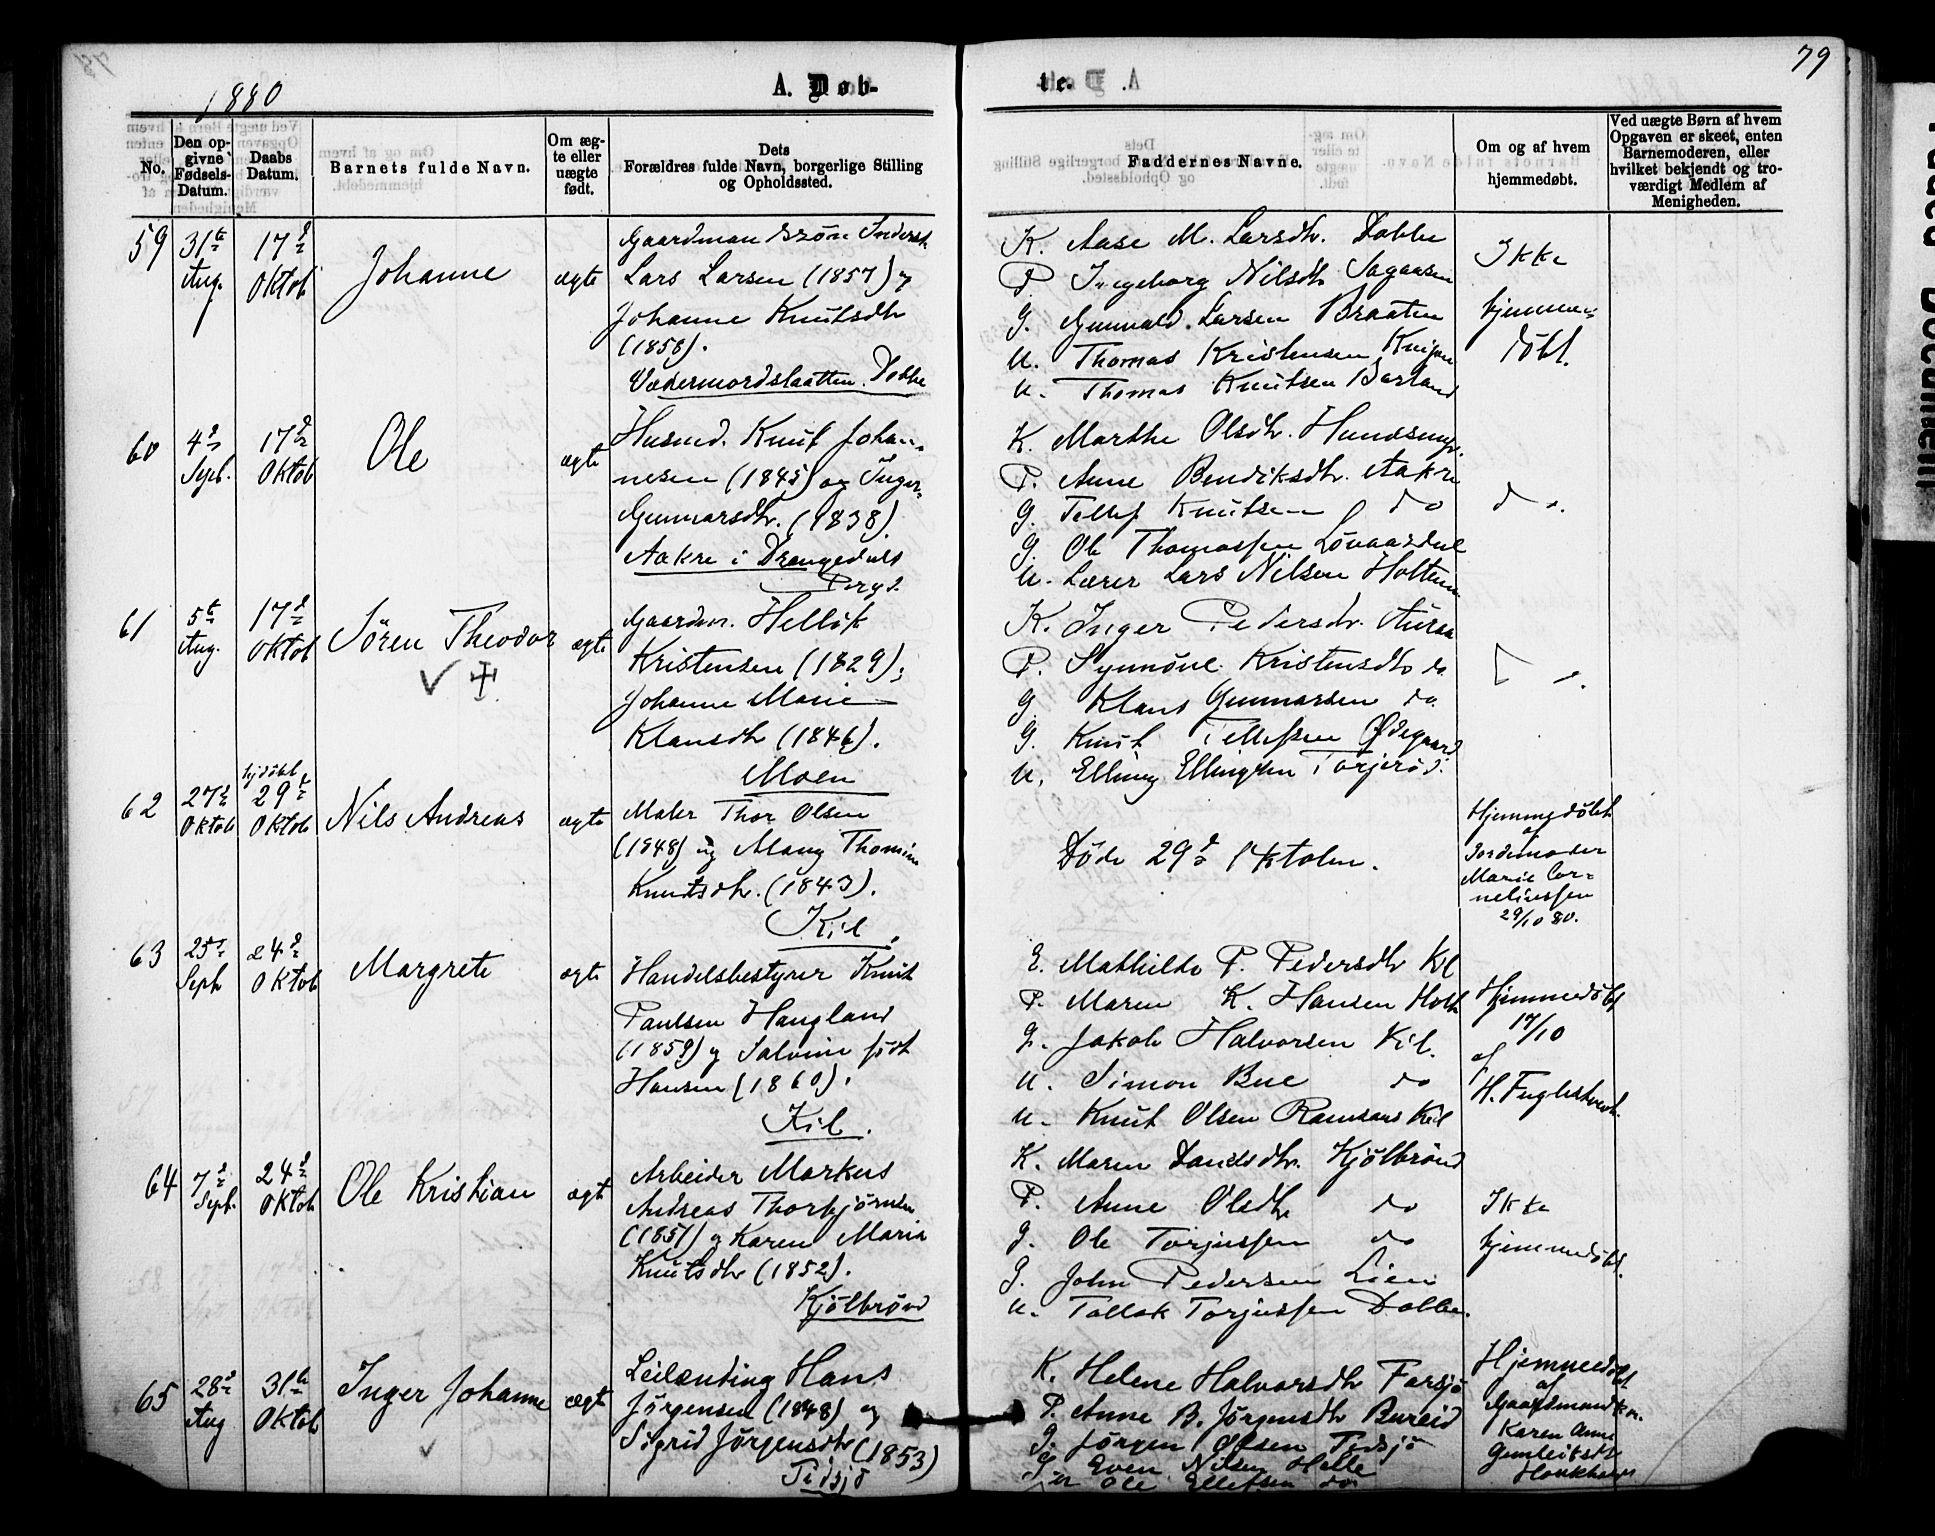 79
1880
A. Døb-
te.
No.
Den op-
givne
Fødsels-
Datum.
Daabs
Datum.
Barnets fulde Navn.
Om æg-
te eller
uægte
født.
Dets
Forældres fulde Navn, borgerlige Stilling
og Opholdssted.
Faddernes Navne.
Om og af hvem
hjemmedøbt.
Ved uægte Børn af hvem
Opgaven er skeet, enten
Barnemoderen, eller
hvilket bekjendt og tro-
værdigt Medlem af
Menigheden.
59
31te
Aug.
17de
Oktob
Johanne
ægte
Gaardman
Lars Larsen (1857) og
Johanne Knutsdtr
(1858).
Dobbe
K. Aase M. Larsdtr. Dobbe
P Ingeborg Nilsdtr Sagaasen
G. Gunvald Larsen Braaten
U. Thomas Kristensen
U. Thomas Knutsen Barland
Ikke
hjemme-
døbt.
60
4de
Sept.
17de
Oktob
Ole
ægte
Husmd. Knut Johan-
nesen (1845) og Inger
Gunnarsdtr. (1838).
Aakre i Drangedals
Prgj.
K Marthe Olsdtr.
P. Anne Bendiksdtr. Aakre
G. Tellef Knutsen do
G. Ole Thomassen
U. Lærer Lars Nilsen Holtan
do.
61
5te
Aug.
17de
Oktob
Sören Theodor
ægte
Gaardm. Hellik
Kristensen (1829);
Johanne Marie
Klausdtr (1846).
Moen
K. Inger Pedersdtr.
P. Synnöve Kristensdtr do
G Klaus Gunnarsen do.
G. Knut Tellefsen Ødegaard
U. Elling Ellingsen Torjerød.
62
27de
Oktob
hjdöbt
29de
Oktob
Nils Andreas
ægte
Maler Thor Olsen
(1848) og Maug Thomine
Knutsdtr. (1843).
Kil
Döde 29de Oktober.
Hjemmedöbt
af
Jordemoder
Marie Cor-
neliussen
29/10 80.
63
25de
Sept
24de
Oktob
Margrete
ægte
Handelsbestyrer Knut
Paulsen Haugland
(1859) og Salvine födt
Hansen (1860).
Kil.
E. Mathilde P. Pedersdtr Kil
P. Maren K. Hansen Holt
G. Jakob Halvorsen Kil.
U. Simon Bue do
U. Knut Olsen Ramsaas Kil
Hjemmedöbt
17/10
af
64
7de
Sept.
24de
Oktob
Ole Kristian
ægte
Arbeider Markus
Andreas Thorbjörnsen
(1851) og Karen Maria
Knutsdtr (1852).
Kjölbrönd
K. Maren Kjölbrönd
P. Anne Olsdtr do
G. Ole Torjussen do
G. John Pedersen Lien
U. Tallak Torjussen Dobbe.
Ikke
hjemmedöbt.
65
28de
Aug
31te
Oktob
Inger Johanne
ægte
Leilænding Hans
Jørgensen (1848) og
Sigrid Jørgensdtr (1853)
Tisjö
K. Helene Halvorsdtr Farsjø
P. Anne B. Jørgensdtr Bureid
G. Jørgen Olsen
G Even Nilsen Helle
U Ole Ellefsen do
Hjemmedöbt
af
Gaardmandkon.
Karen Anne